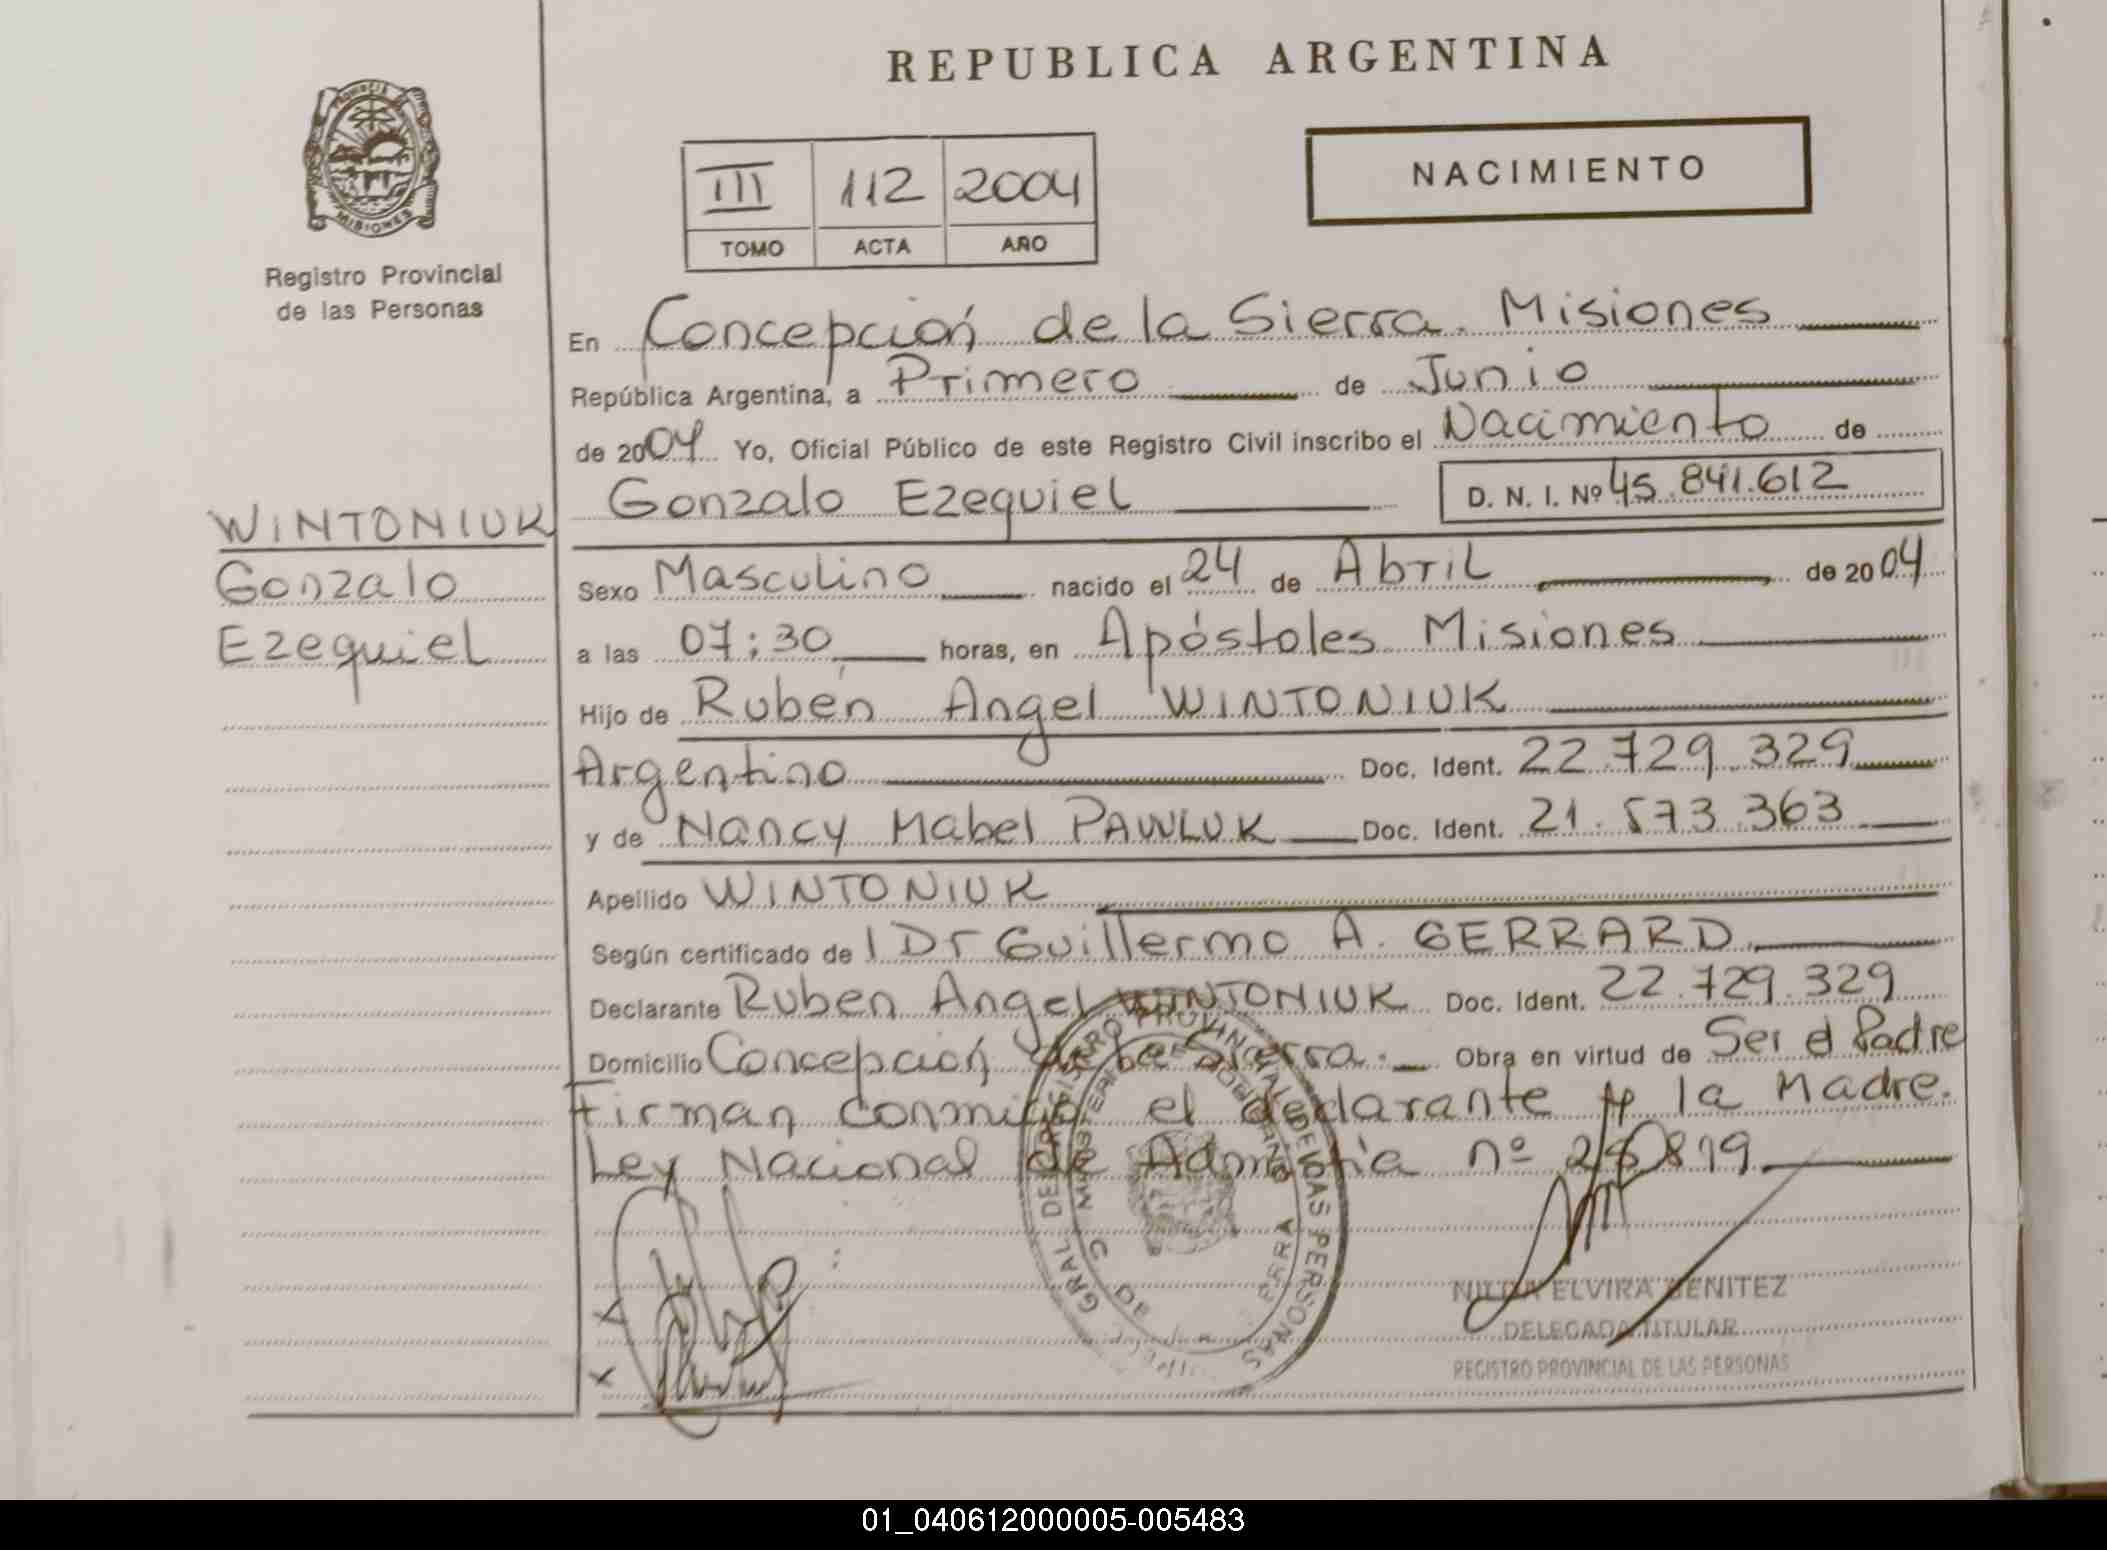 REPUBLICA ARGENTINA
PROVINCIA DE MISIONES
Registro Provincial
de las Personas
III 112 2004
TOMO ACTA AÑO
NACIMIENTO
En Concepción de la Sierra. Misiones
República Argentina, a Primero de Junio
de 2004 Yo, Oficial Público de este Registro Civil inscribo el Nacimiento de
Gonzalo Ezequiel D. N. I. Nº 45.841.612
WINTONIUK
Gonzalo
Ezequiel
Sexo Masculino nacido el 24 de Abril de 2004
a las 07:30 horas, en Apóstoles Misiones
Hijo de Rubén Angel WINTONIUK
Argentino Doc. Ident. 22.729.329
y de Nancy Mabel PAWLUK Doc. Ident. 21.573.363
Apellido WINTONIUK
Según certificado de l Dr Guillermo A. GERRARD
Declarante Ruben Angel WINTONIUK Doc. Ident. 22.729.329
Domicilio Concepción de la Sierra. Obra en virtud de Ser el Padre
Firman conmigo el declarante y la Madre.
Ley Nacional de Admistía nº 25819
GRAL DEL REGISTRO PROVINCIAL DE LAS PERSONAS
MINISTERIO DE GOBIERNO
NILDA ELVIRA BENITEZ
DELEGADA TITULAR
REGISTRO PROVINCIAL DE LAS PERSONAS
01_040612000005-005483